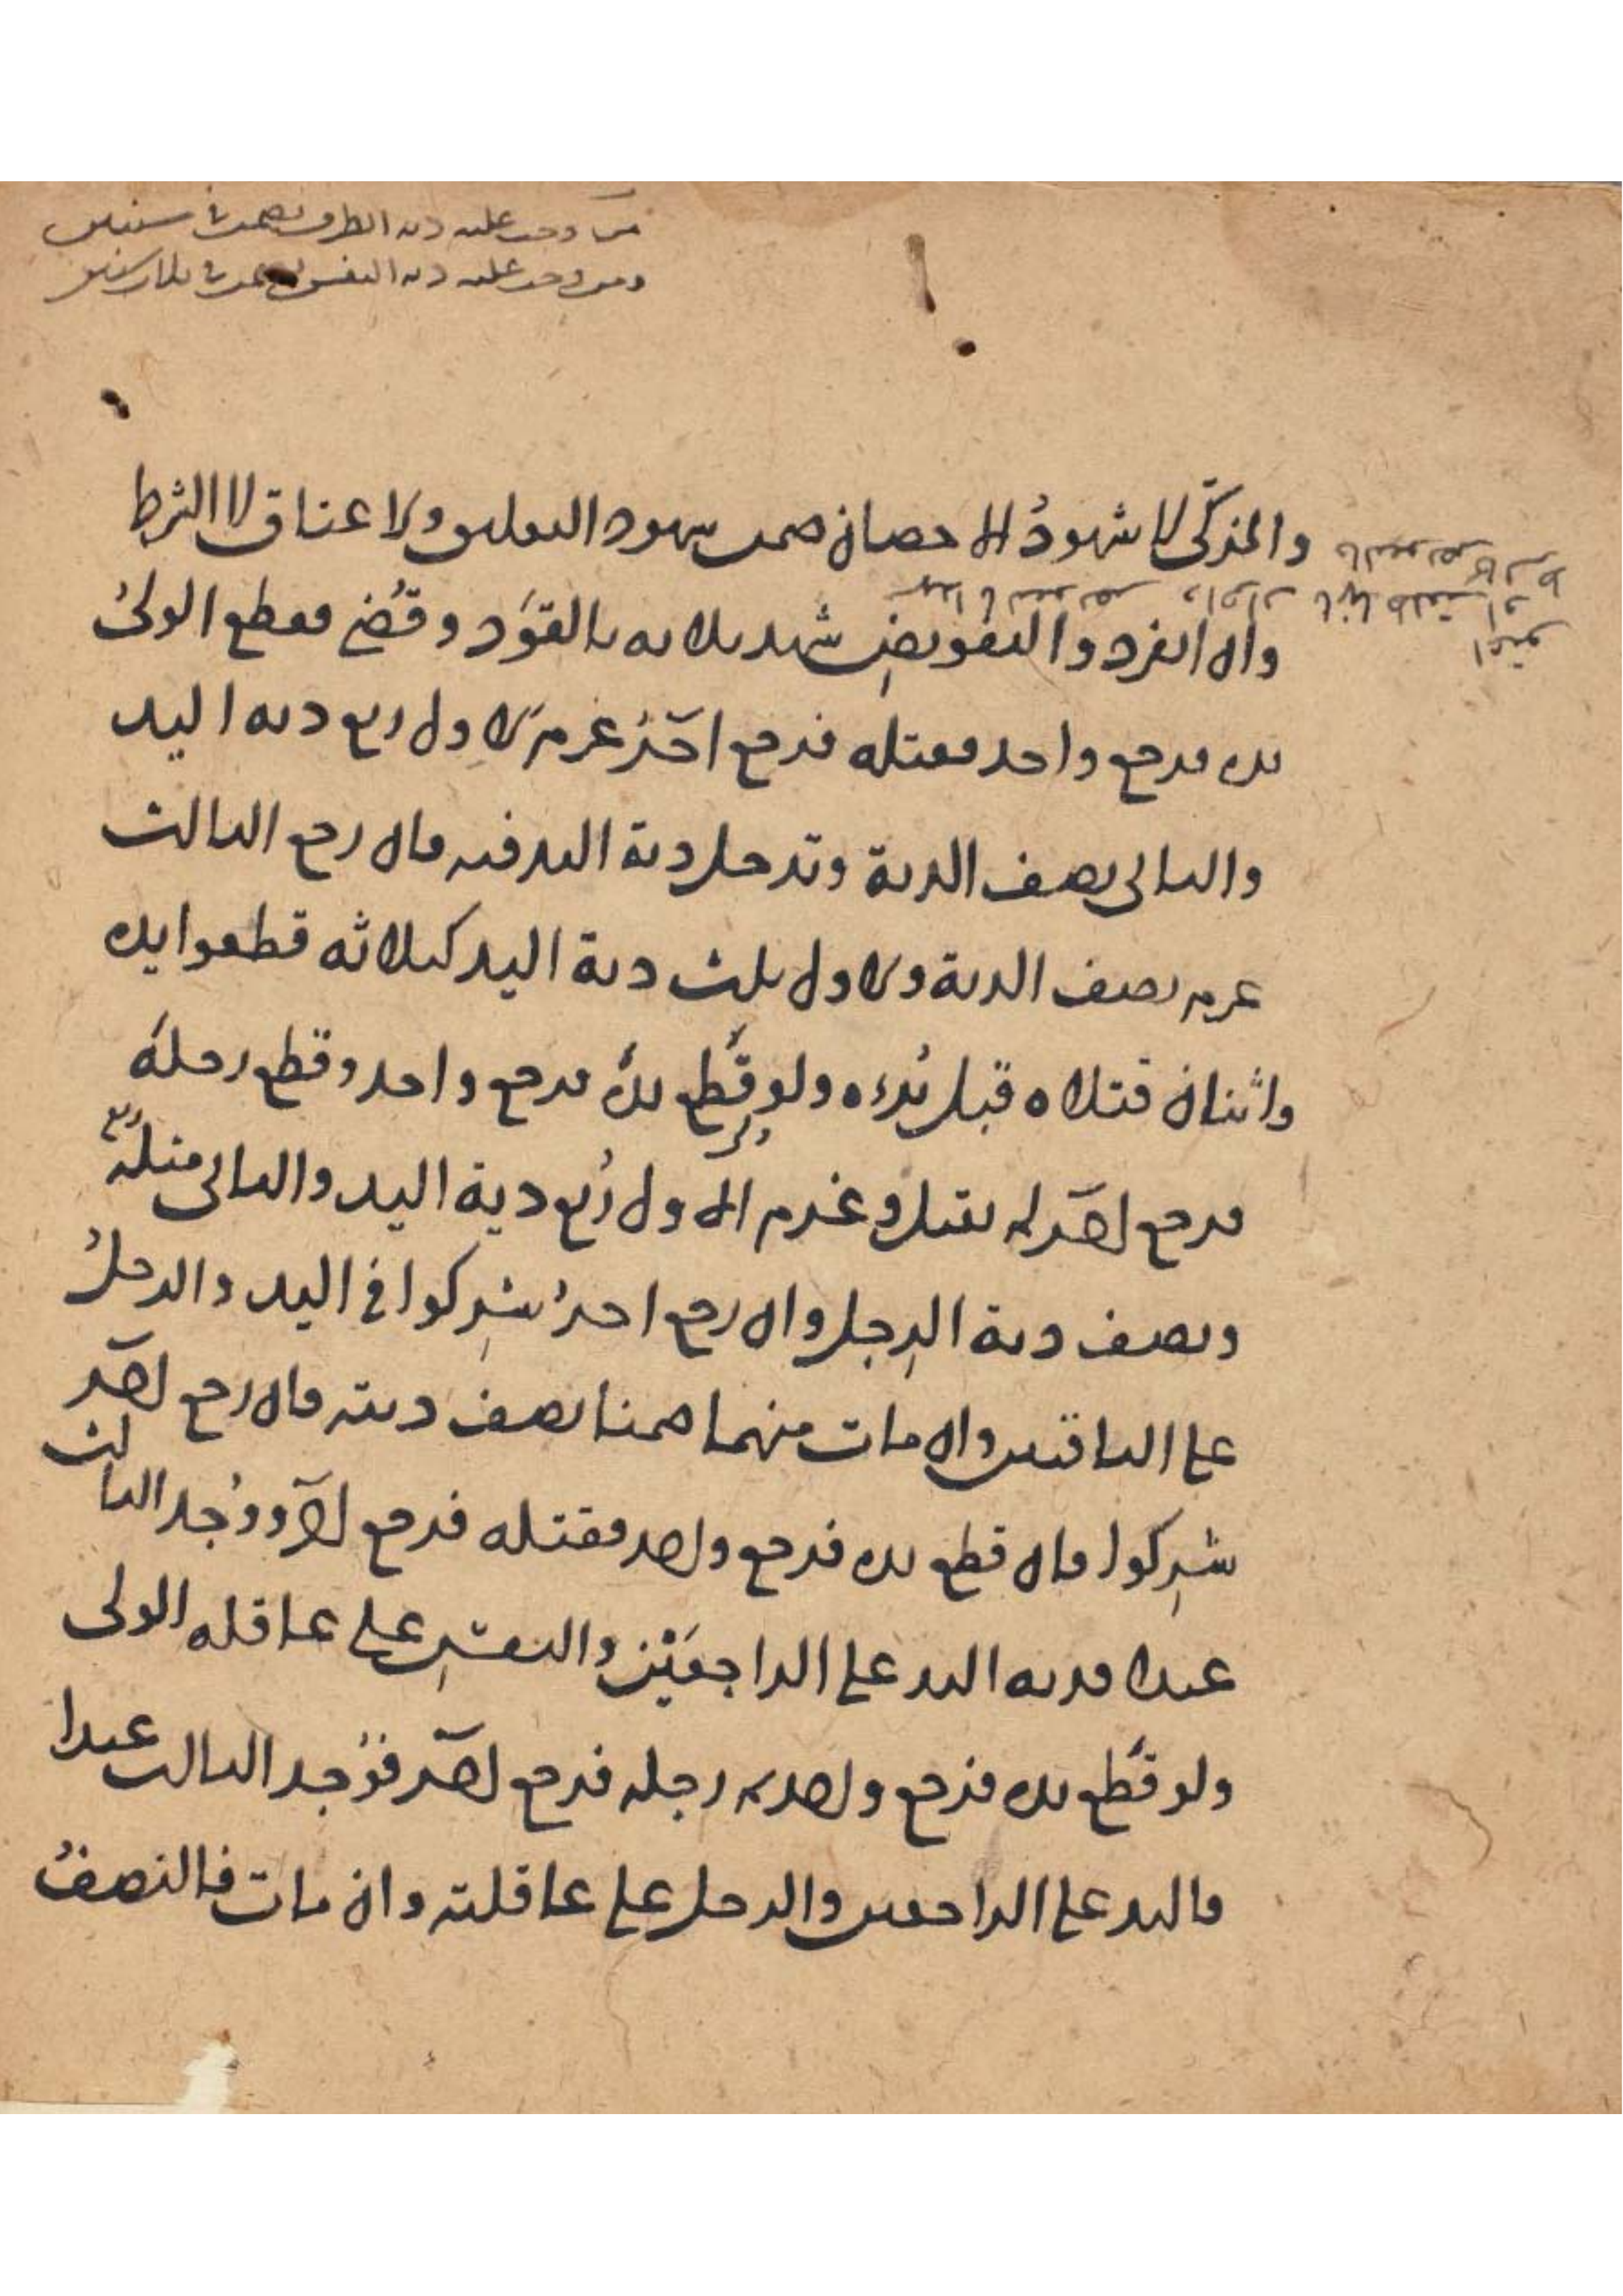 من وجب عليه دية الطرف يضمن في سنتين
ومن وجب عليه دية النفس في ثلاث سنين
والمزكّى لا شهودُ الاحصان ضمن شهود التعليق والاعتاق لا الشرط
وان انفرد والتفويض شهد ثلاثه بالقَوَد وقُضِي فقطع الولىُّ
يده فرجع واحد فقتله فرجع آخَرُ غرم الاول ربع دية اليد
والثانى نصف الدية وتدخل دية اليد فيه فان رجع الثالث
غرم نصف الدية والاول ثلث دية اليد كثلاثة قطعوا يده
واثنان قتلاه قبل بُرْءه ولو قُطِع يدُه فرجع واحد وقطع رجلَه
فرجع اخر لم يقتل وغرم الاول رُبع دية اليد والثانى مثله
ونصف دية الرِجل وان رجع اخرُ شرِكوا في اليد والرجلُ
على الباقين وان مات منهما ضمنا نصف ديته فان رجع اخر
شرِكوا فان قطع يده فرجع واحد فقتله فرجع اخر ووُجد الثالث
عبدا فدية اليد على الراجعَيْن والنفس على عاقلة الولى
ولو قُطِع يده فرجع واحد ثم رجله فرجع اخر فوُجد الثالث عبدا
فاليد على الراجعين والرجل على عاقلته وان مات فالنصفُ